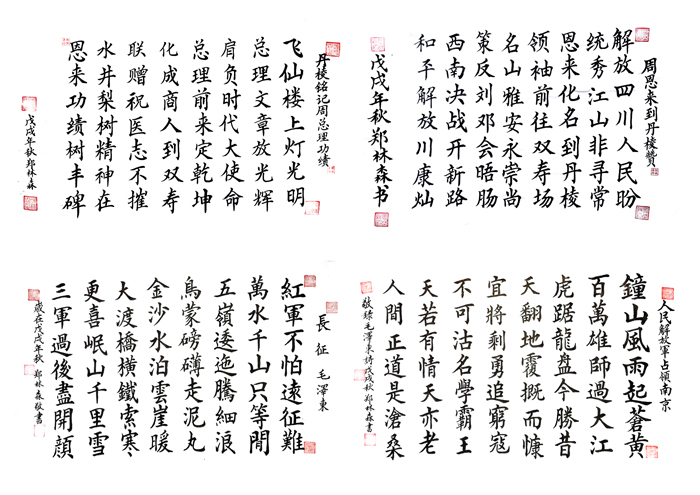 丹棱铭记周总理功绩
飞仙楼上灯光明
总理文章放光辉
肩负时代大使命
总理前来定乾坤
化成商人到双寿
联赠祝医志不摧
水井梨树精神在
恩来功绩树丰碑
戊戌年秋郑林森
周恩来到丹棱赞
解放四川人民盼
统秀江山非寻常
恩来化名到丹棱
领袖前往双寿场
名山雅安永崇尚
策反刘邓会晤肠
西南决战开新路
和平解放川康灿
戊戌年秋郑林森书
長征 毛澤東
紅軍不怕遠征難
萬水千山只等閒
五嶺逶迤騰細浪
烏蒙磅礴走泥丸
金沙水泊雲崖暖
大渡橋橫鐵索寒
更喜岷山千里雪
三軍過後盡開顏
歲在戊戌年秋 郑林森敬書
人民解放軍占領南京
鐘山風雨起蒼黃
百萬雄師過大江
虎踞龍盘今勝昔
天翻地覆慨而慷
宜將剩勇追窮寇
不可沽名學霸王
天若有情天亦老
人間正道是滄桑
敬錄毛澤東詩戊戌秋郑林森書